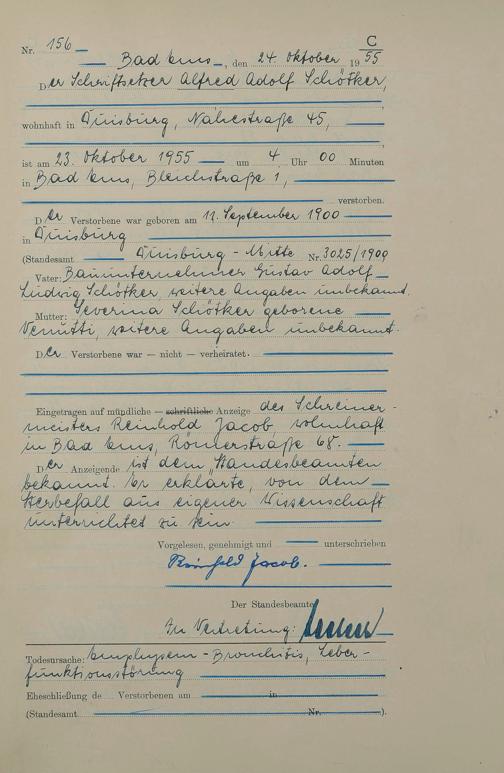 C
Nr. 156
Bad Ems, den 24. Oktober 1955
Der Schriftsetzer Alfred Adolf Schötker,
wohnhaft in Duisburg, Nahestraße 45,
ist am 23. Oktober 1955 um 4 Uhr 00 Minuten
in Bad Ems, Bleichstraße 1,
verstorben.
Der Verstorbene war geboren am 11. September 1900
in Duisburg
(Standesamt Duisburg-Mitte Nr. 3025/1900
Vater: Bauunternehmer Gustav Adolf
Ludwig Schötker, weitere Angaben unbekannt.
Mutter: Severina Schötker geborene
Venutti, weitere Angaben unbekannt.
Der Verstorbene war — nicht — verheiratet.
Eingetragen auf mündliche — schriftliche Anzeige des Schreiner-
meisters Reinhold Jacob, wohnhaft
in Bad Ems, Römerstraße 68.
Der Anzeigende ist dem Standesbeamten
bekannt. Er erklärte, von dem
Sterbefall aus eigener Wissenschaft
unterrichtet zu sein.
Vorgelesen, genehmigt und unterschrieben
Reinhold Jacob.
Der Standesbeamte
In Vertretung:
Todesursache: Emphysem-Bronchitis, Leber-
funktionsstörung
Eheschließung de Verstorbenen am in
(Standesamt Nr. ).